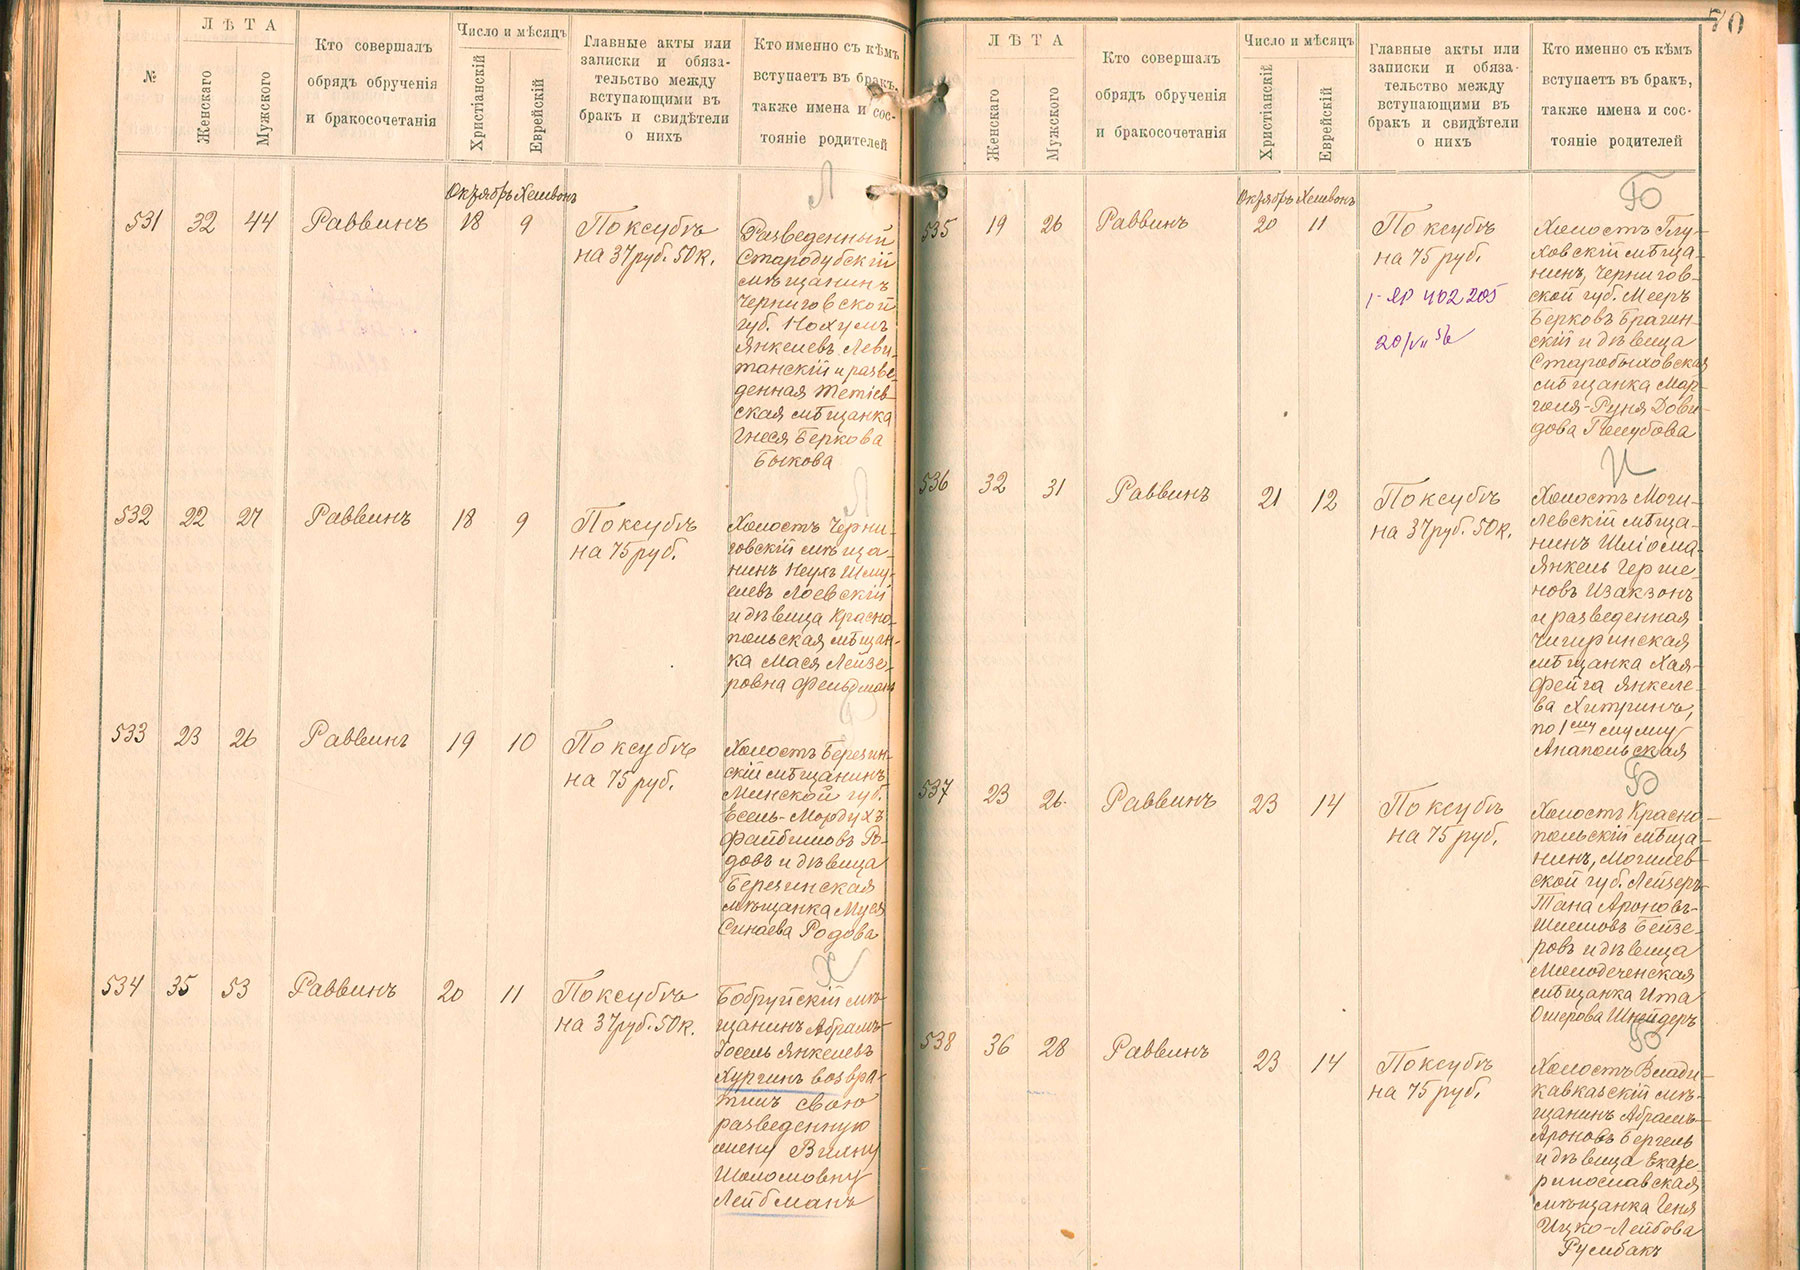 70
№
ЛѢТА
Женскаго
Мужского
Кто совершалъ
обрядъ обрученія
и бракосочетанія
Число и мѣсяцъ
Христіанскій
Еврейскій
Главные акты или
записки и обяза-
тельство между
вступающими въ
бракъ и свидѣтели
о нихъ
Кто именно съ кѣмъ
вступаетъ въ бракъ,
также имена и сос-
тояніе родителей
Октябрь Хешвонъ
Л
531 32 44 Раввинъ 18 9
По ксубѣ
на 37 руб. 50 к.
Разведенный
Стародубскій
мѣщанинъ
Черниговской
губ. Нохумъ
Янкелевъ Леви-
танскій и разве-
денная Тетіев-
ская мѣщанка
Гнеся Беркова
Быкова
Л
532 22 27 Раввинъ 18 9
По ксубѣ
на 75 руб.
Холостъ Черни-
говскій мѣща-
нинъ Неухъ Шму-
елевъ Лоевскій
и дѣвица Красно-
польская мѣщан-
ка Мася Лейзе-
ровна Фельдманъ
533 23 26 Раввинъ 19 10
По ксубѣ
на 75 руб.
Холостъ Березин-
скій мѣщанинъ
Минской губ.
Есель-Мордухъ
Файбишовъ Ро-
довъ и дѣвица
Березинская
мѣщанка Муся
Синаева Родова
Х
534 35 53 Раввинъ 20 11
По ксубѣ
на 37 руб. 50 к.
Бобруйскій мѣ-
щанинъ Абрамъ-
Іосель Янкелевъ
Хургинъ возвра-
тилъ свою
разведенную
жену Вилну
Шоломовну
Лейбманъ
ЛѢТА
Женскаго
Мужского
Кто совершалъ
обрядъ обрученія
и бракосочетанія
Число и мѣсяцъ
Христіанскій
Еврейскій
Главные акты или
записки и обяза-
тельство между
вступающими въ
бракъ и свидѣтели
о нихъ
Кто именно съ кѣмъ
вступаетъ въ бракъ,
также имена и сос-
тояніе родителей
Октябрь Хешвонъ
Б
535 19 26 Раввинъ 20 11
По ксубѣ
на 75 руб.
I-ЯР 402205
20/VII 56
Холостъ Глу-
ховскій мѣща-
нинъ, Чернигов-
ской губ. Мееръ
Берковъ Брагин-
скій и дѣвица
Старобыховская
мѣщанка Мар-
голя-Руня Дови-
дова Голубова
И
536 32 31 Раввинъ 21 12
По ксубѣ
на 37 руб. 50 к.
Холостъ Моги-
левскій мѣща-
нинъ Шліома-
Янкель Герше-
новъ Изакзонъ
и разведенная
Чигиринская
мѣщанка Хая-
Фейга Янкеле-
ва Хитринъ,
по 1му мужу
Анапольская
Б
537 23 26. Раввинъ 23 14
По ксубѣ
на 75 руб.
Холостъ Красно-
польскій мѣща-
нинъ, Могилев-
ской губ. Лейзеръ-
Тана Ароновъ-
Шлемовъ Бейзе-
ровъ и дѣвица
Молодеченская
мѣщанка Ита
Ошерова Шнейдеръ
Б
538 36 28 Раввинъ 23 14
По ксубѣ
на 75 руб.
Холостъ Влади-
кавказскій мѣ-
щанинъ Абрамъ-
Ароновъ Бергель
и дѣвица Екате-
ринославская
мѣщанка Геня
Ицко-Лейбова
Румбакъ